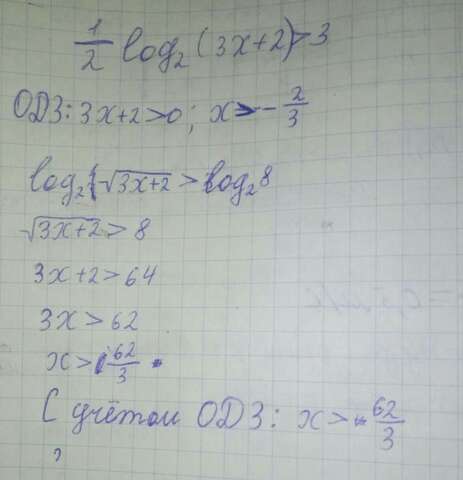 1/2 log₂(3x+2)>3
ОДЗ: 3x+2>0; x>-2/3
log₂√3x+2 > log₂8
√3x+2 > 8
3x+2>64
3x>62
x>62/3
С учётом ОДЗ: x>62/3